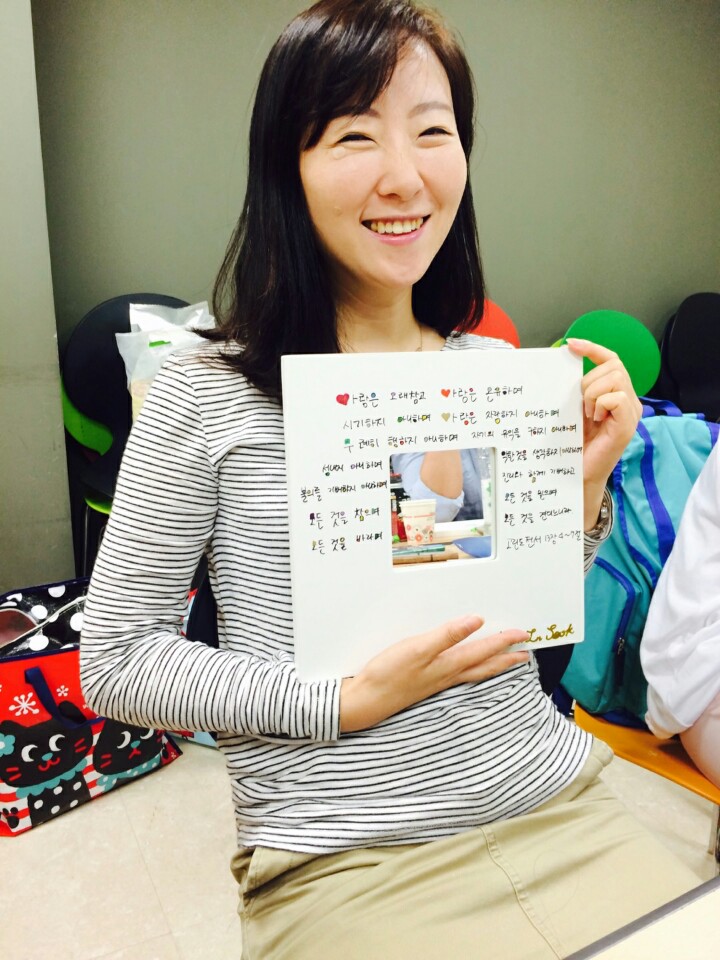 사랑은 오래참고 사랑은 온유하며
시기하지 아니하며 사랑은 자랑하지 아니하며
무례히 행하지 아니하며 자기의 유익을 구하지 아니하며
성내지 아니하며 악한 것을 생각하지 아니하며
불의를 기뻐하지 아니하며 진리와 함께 기뻐하고
모든 것을 참으며 모든 것을 믿으며
모든 것을 바라며 모든 것을 견디느니라
고린도전서 13장 4~7절